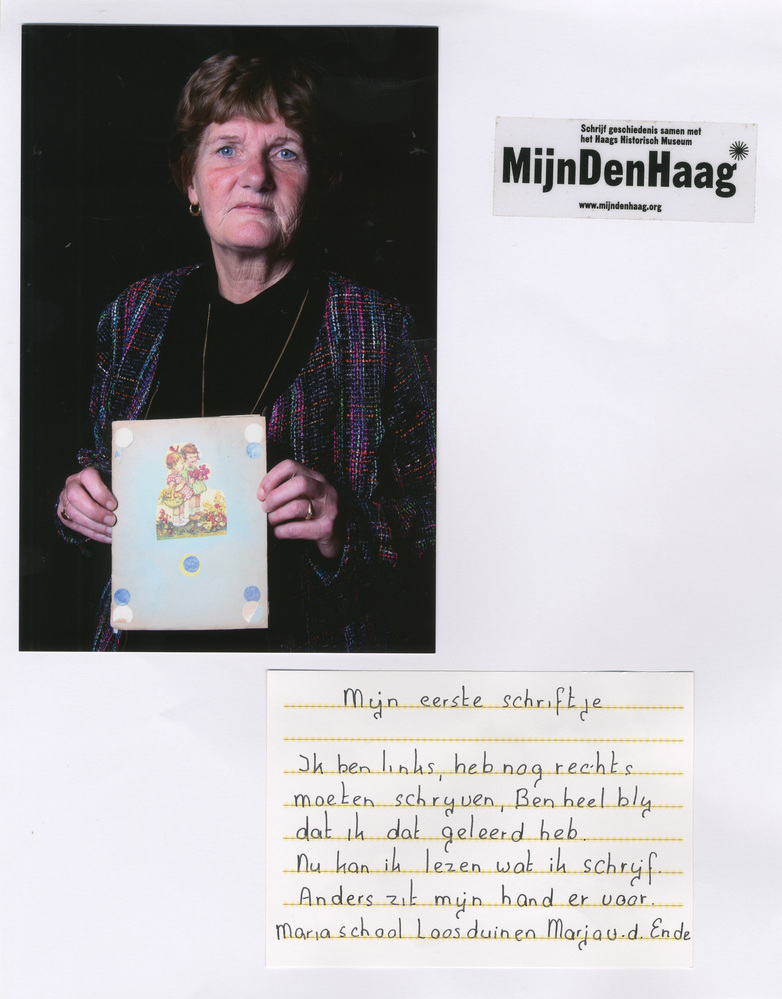 Schrijf geschiedenis samen met
het Haags Historisch Museum
MijnDenHaag
www.mijndenhaag.org
Mijn eerste schriftje
Ik ben links, heb nog rechts
moeten schrijven, Ben heel blij
dat ik dat geleerd heb.
Nu kan ik lezen wat ik schrijf.
Anders zit mijn hand er voor.
Mariaschool Loosduinen Marja v.d. Ende